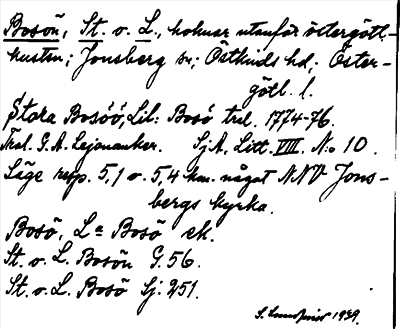 Bosön, St. o. L., holmar utanför östergötl.-
kusten; Jonsberg sn; Östkinds hd; Öster-
götl. l.
Stora Bosöö, Lil: Bosö trol. 1774-76.
Tral. G. A. Lejonanker. Sj A, Litt. VIII. N:o 10.
Läge resp. 5,1 o. 5,4 km. något NNV Jons-
bergs kyrka.
Bosö, La Bosö ek.
St. o. L. Bosön G. 56.
St. o. L. Bosö Sj. 251.
1939.